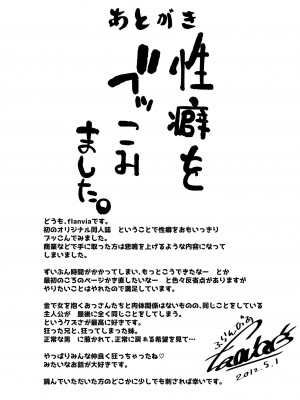 あとがき
性癖を
ブッこみ
ました。
どうも、flanviaです。
初のオリジナル同人誌　ということで性癖をおもいっきり
ブッこんでみました。
商業などで手に取った方は悲鳴を上げるような内容になって
しまいました。
ずいぶん時間がかかってしまい、もっとこうできたなー　とか
最初のころのページかき直したいなー　と色々反省点がありますが
やりたいことはやれたので満足しています。
金で女を抱くおっさんたちと肉体関係はないものの、同じことをしている
主人公が　最後に全く同じことをしてしまう。
というクズさが最高に好きです。
狂った兄と、狂ってしまった妹。
正常な男　に惹かれて、正常に戻れる希望を見て…
やっぱりみんな仲良く狂っちゃったね♡
みたいなお話が大好きです。
読んでいただいた方のどこかに少しでも刺されば幸いです。
ふらんびあ
2012.5.1